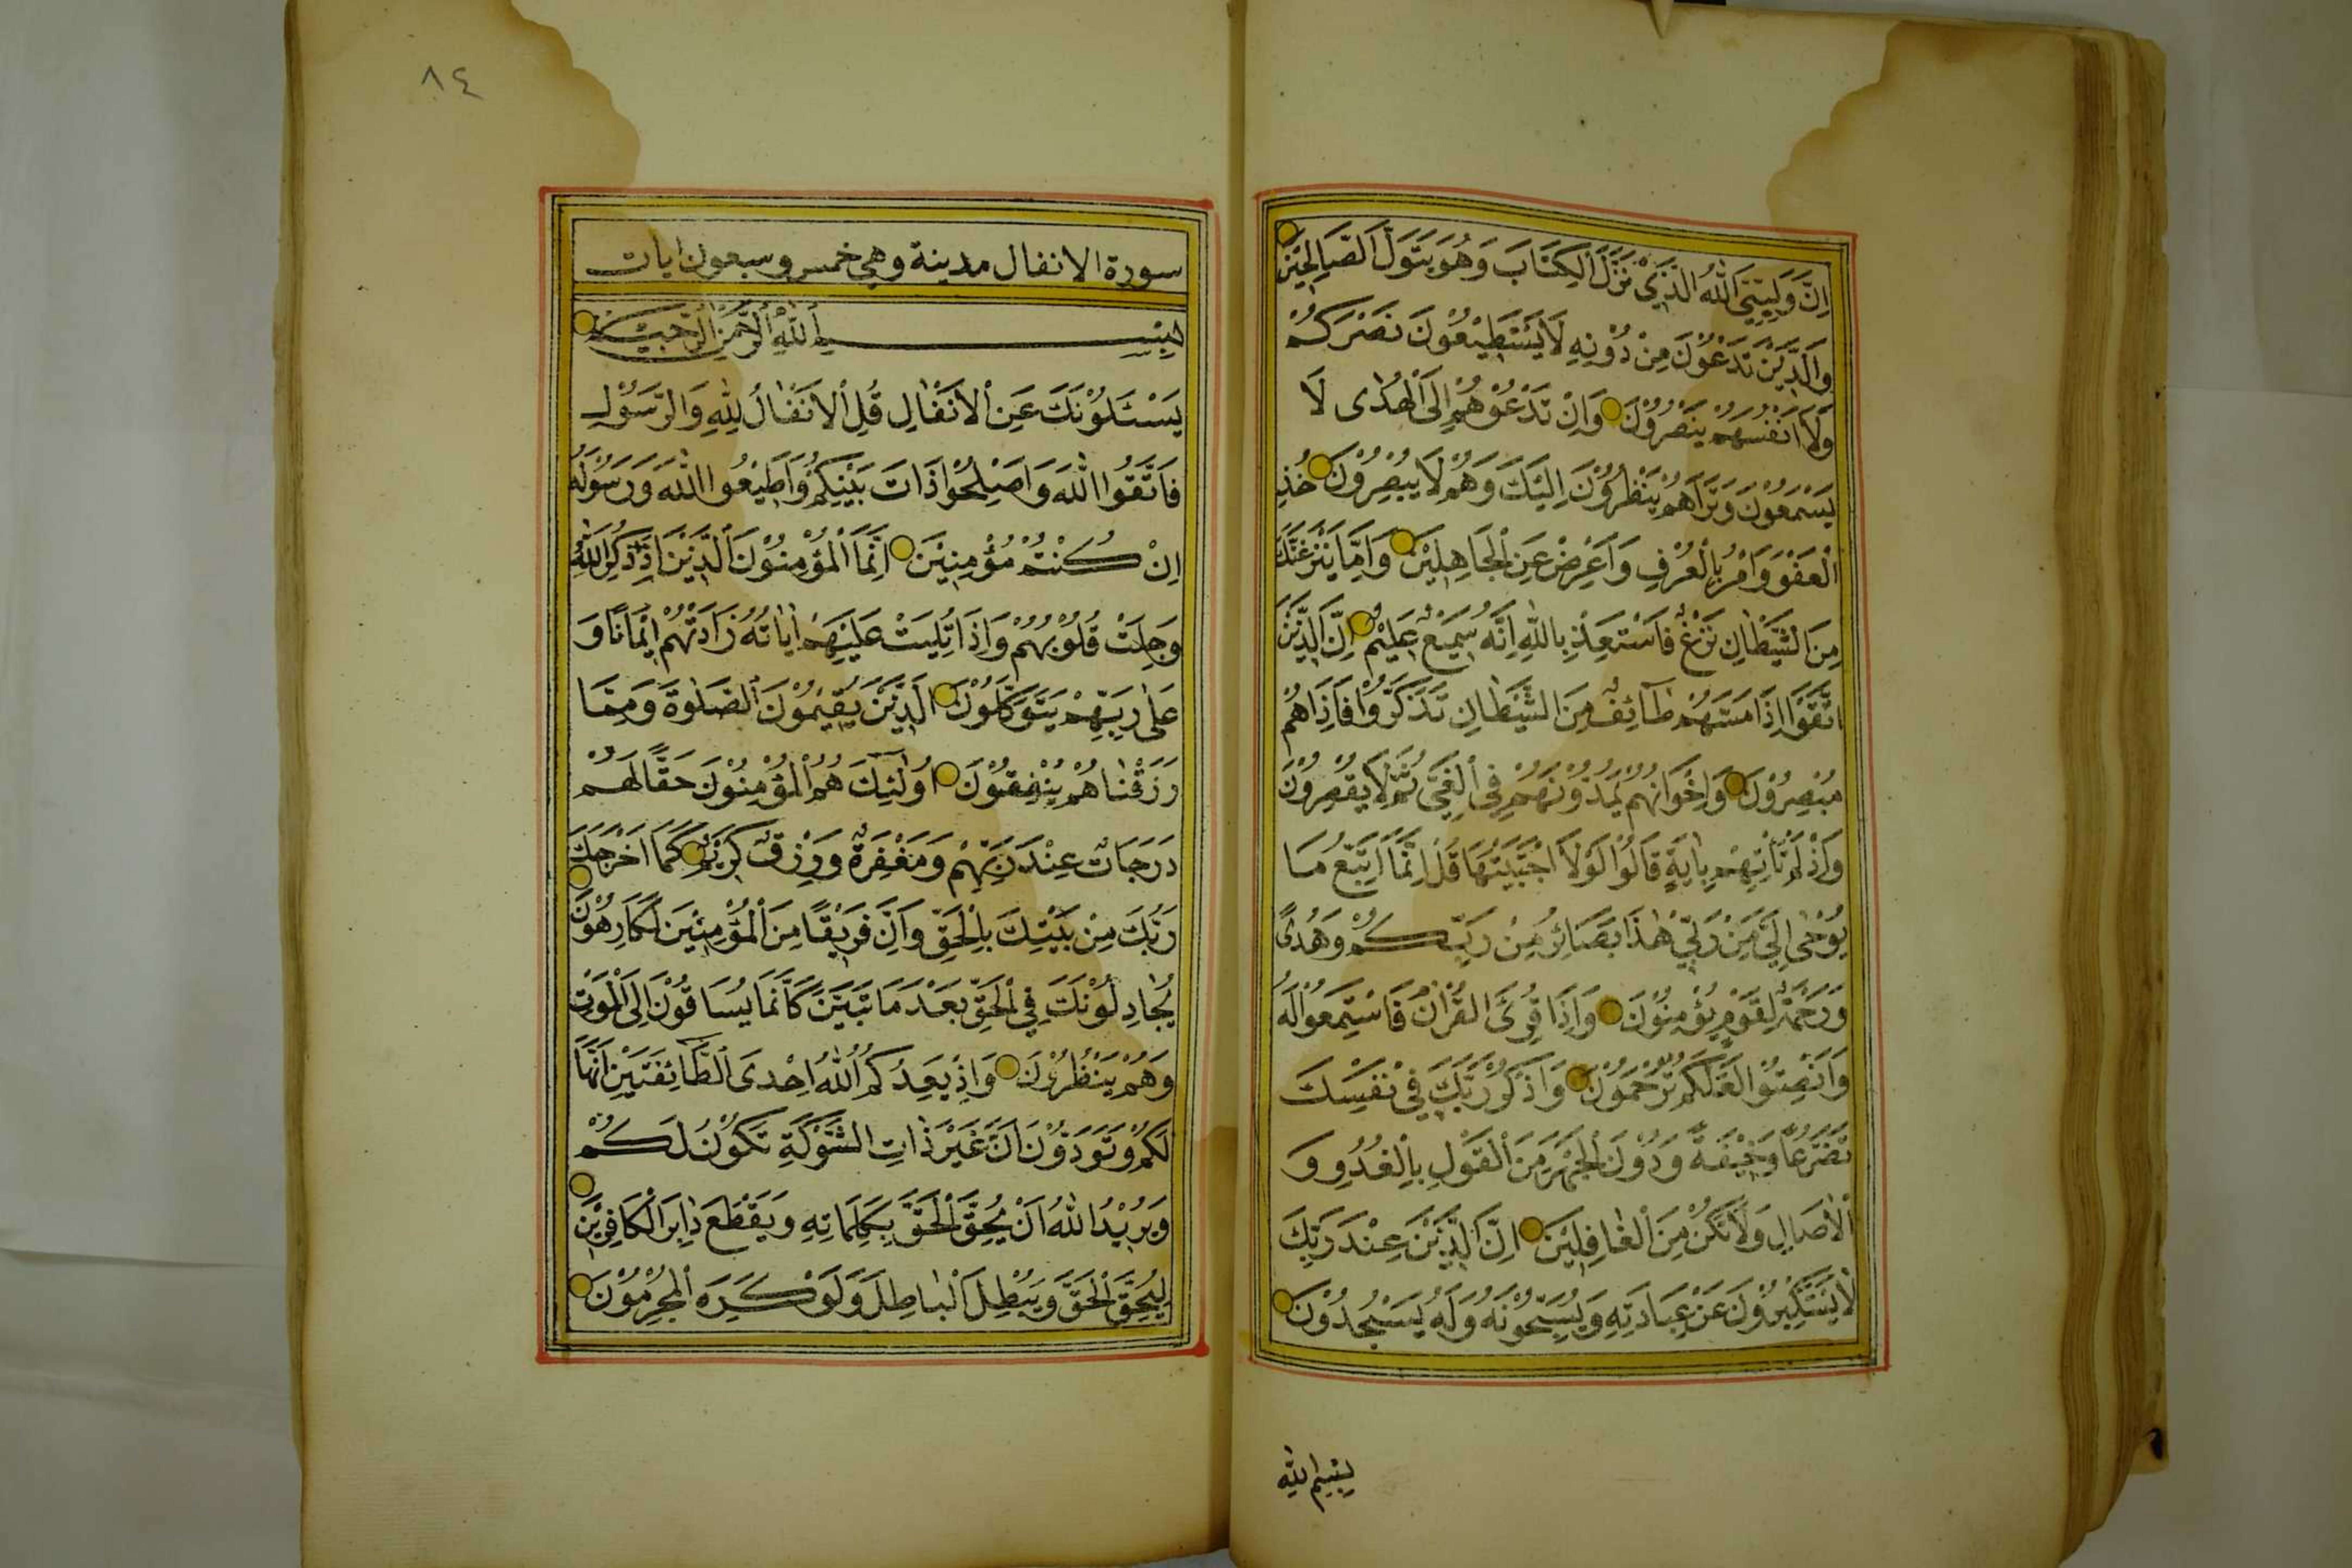 اِنَّ وَلِيِّيَ اللّٰهُ الَّذِيْ نَزَّلَ الْكِتَابَ وَهُوَ يَتَوَلَّ الصَّالِحِيْنَ
وَالَّذِيْنَ تَدْعُوْنَ مِنْ دُوْنِهِ لَا يَسْتَطِيْعُوْنَ نَصْرَكُمْ
وَلَا اَنْفُسَهُمْ يَنْصُرُوْنَ وَاِنْ تَدْعُوْهُمْ اِلَى الْهُدٰى لَا
يَسْمَعُوْنَ وَتَرَاهُمْ يَنْظُرُوْنَ اِلَيْكَ وَهُمْ لَا يُبْصِرُوْنَ خُذِ
الْعَفْوَ وَامُرْ بِالْعُرْفِ وَاَعْرِضْ عَنِ الْجَاهِلِيْنَ وَاِمَّا يَنْزَغَنَّكَ
مِنَ الشَّيْطَانِ نَزْغٌ فَاسْتَعِذْ بِاللّٰهِ اِنَّهُ سَمِيْعٌ عَلِيْمٌ اِنَّ الَّذِيْنَ
اتَّقَوْا اِذَا مَسَّهُمْ طَآئِفٌ مِنَ الشَّيْطَانِ تَذَكَّرُوْا فَاِذَا هُمْ
مُبْصِرُوْنَ وَاِخْوَانُهُمْ يَمُدُّوْنَهُمْ فِي الْغَيِّ ثُمَّ لَا يُقْصِرُوْنَ
وَاِذْ لَمْ تَاْتِهِمْ بِاٰيَةٍ قَالُوْا لَوْلَا اجْتَبَيْتَهَا قُلْ اِنَّمَا اَتَّبِعُ مَا
يُوْحٰى اِلَيَّ مِنْ رَبِّيْ هٰذَا بَصَائِرُ مِنْ رَبِّكُمْ وَهُدًى
وَرَحْمَةٌ لِقَوْمٍ يُؤْمِنُوْنَ وَاِذَا قُرِئَ الْقُرْاٰنُ فَاسْتَمِعُوْا لَهُ
وَاَنْصِتُوْا لَعَلَّكُمْ تُرْحَمُوْنَ وَاذْكُرْ رَبَّكَ فِيْ نَفْسِكَ
تَضَرُّعًا وَخِيْفَةً وَدُوْنَ الْجَهْرِ مِنَ الْقَوْلِ بِالْغُدُوِّ وَ
الْاٰصَالِ وَلَا تَكُنْ مِنَ الْغَافِلِيْنَ اِنَّ الَّذِيْنَ عِنْدَ رَبِّكَ
لَا يَسْتَكْبِرُوْنَ عَنْ عِبَادَتِهِ وَيُسَبِّحُوْنَهُ وَلَهُ يَسْجُدُوْنَ
بِسْمِ اللّٰهِ
٨٤
سورة الانفال مدينة وهي خمس وسبعون ايات
بِسْمِ اللّٰهِ الرَّحْمٰنِ الرَّحِيْمِ
يَسْـَٔلُوْنَكَ عَنِ الْاَنْفَالِ قُلِ الْاَنْفَالُ لِلّٰهِ وَالرَّسُوْلِ
فَاتَّقُوا اللّٰهَ وَاَصْلِحُوْا ذَاتَ بَيْنِكُمْ وَاَطِيْعُوا اللّٰهَ وَرَسُوْلَهُ
اِنْ كُنْتُمْ مُؤْمِنِيْنَ اِنَّمَا الْمُؤْمِنُوْنَ الَّذِيْنَ اِذَا ذُكِرَ اللّٰهُ
وَجِلَتْ قُلُوْبُهُمْ وَاِذَا تُلِيَتْ عَلَيْهِمْ اٰيَاتُهُ زَادَتْهُمْ اِيْمَانًا وَ
عَلٰى رَبِّهِمْ يَتَوَكَّلُوْنَ الَّذِيْنَ يُقِيْمُوْنَ الصَّلٰوةَ وَمِمَّا
رَزَقْنَاهُمْ يُنْفِقُوْنَ اُولٰٓئِكَ هُمُ الْمُؤْمِنُوْنَ حَقًّا لَهُمْ
دَرَجَاتٌ عِنْدَ رَبِّهِمْ وَمَغْفِرَةٌ وَرِزْقٌ كَرِيْمٌ كَمَا اَخْرَجَكَ
رَبُّكَ مِنْ بَيْتِكَ بِالْحَقِّ وَاِنَّ فَرِيْقًا مِنَ الْمُؤْمِنِيْنَ لَكَارِهُوْنَ
يُجَادِلُوْنَكَ فِي الْحَقِّ بَعْدَ مَا تَبَيَّنَ كَاَنَّمَا يُسَاقُوْنَ اِلَى الْمَوْتِ
وَهُمْ يَنْظُرُوْنَ وَاِذْ يَعِدُكُمُ اللّٰهُ اِحْدَى الطَّآئِفَتَيْنِ اَنَّهَا
لَكُمْ وَتَوَدُّوْنَ اَنَّ غَيْرَ ذَاتِ الشَّوْكَةِ تَكُوْنُ لَكُمْ
وَيُرِيْدُ اللّٰهُ اَنْ يُحِقَّ الْحَقَّ بِكَلِمَاتِهِ وَيَقْطَعَ دَابِرَ الْكَافِرِيْنَ
لِيُحِقَّ الْحَقَّ وَيُبْطِلَ الْبَاطِلَ وَلَوْ كَرِهَ الْمُجْرِمُوْنَ